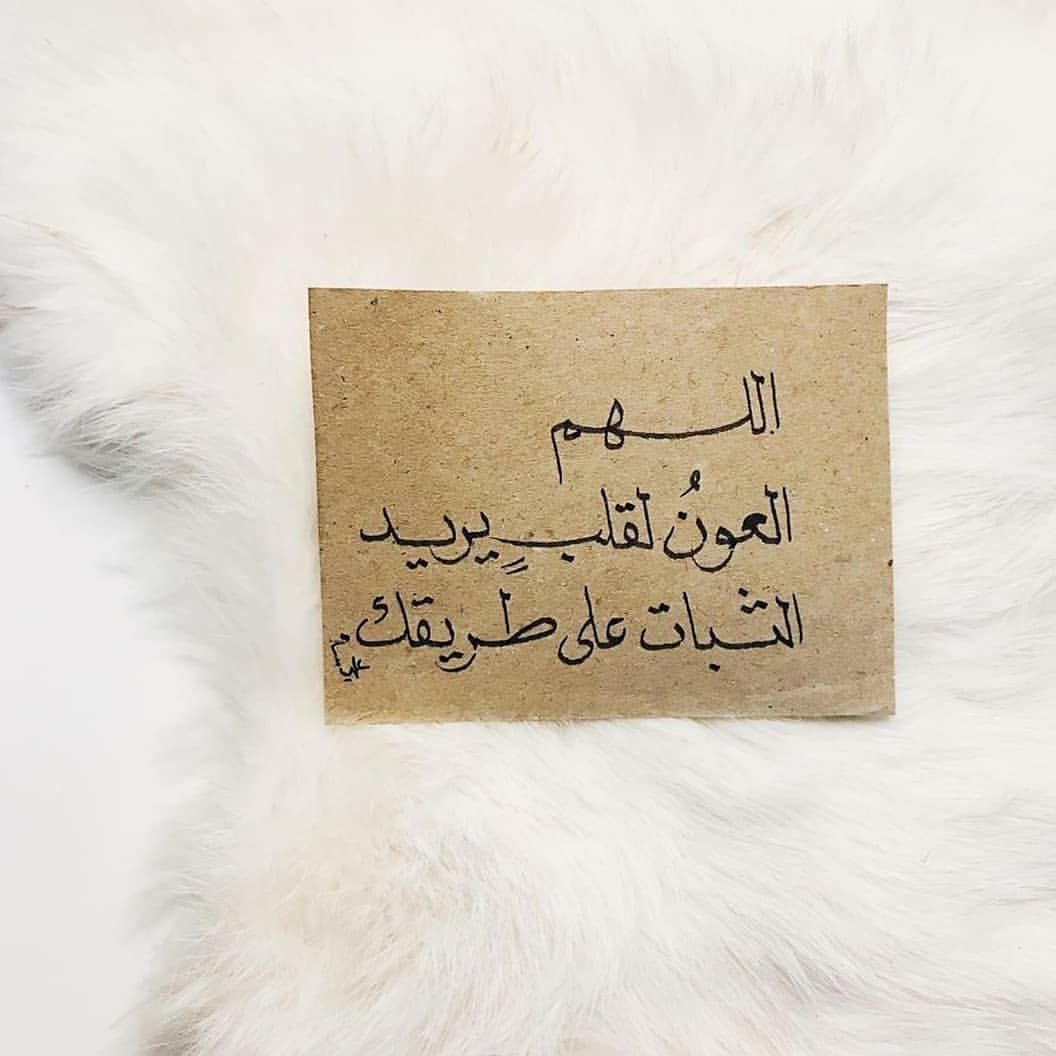 اللهم
العونُ لقلبٍ يريد
الثبات على طريقك